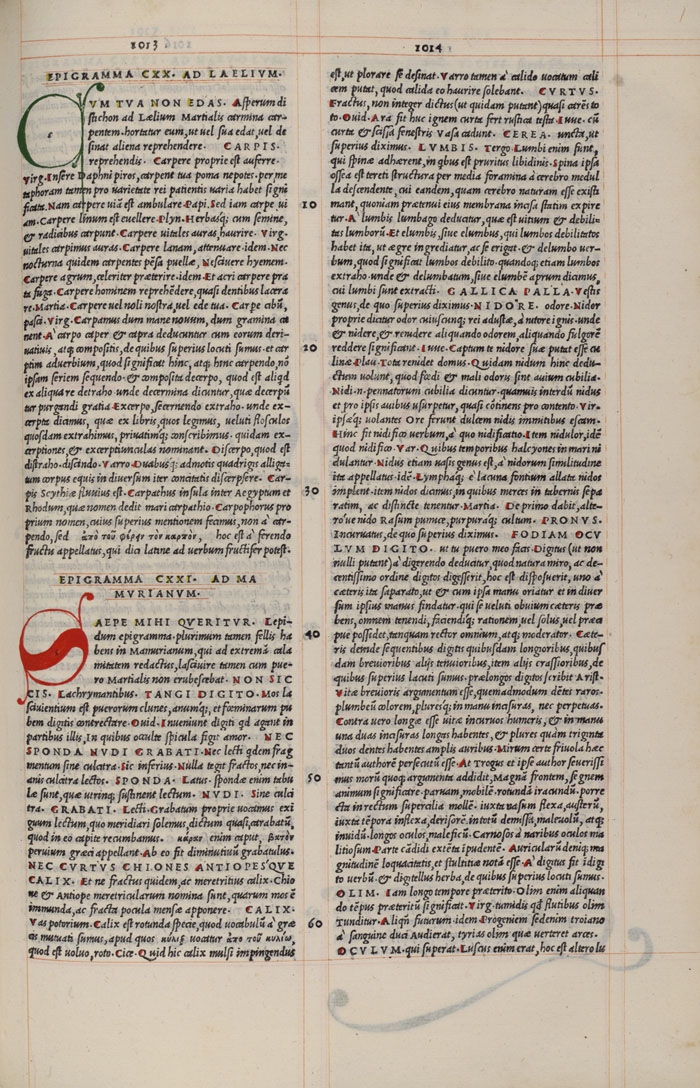 1013
EPIGRAMMA CXX. AD LAELIVM.
CVM TVA NON EDAS. Asperum di
stichon ad Lælium Martialis carmina car-
pentem. hortatur eum, ut uel sua edat, uel de
sinat aliena reprehendere. CARPIS.
reprehendis. Carpere proprie est auferre.
virg. Insere Daphni piros, carpent tua poma nepotes. per me
taphoram tamen pro uarietate rei patientis uaria habet signi
ficata. Nam carpere uiã est ambulare. Papi. Sed iam carpe ui
am. Carpere linum est euellere. Plyn. Herbasq; cum semine,
& radicibus carpunt. Carpere uitales auras, haurire. Virg.
uitales carpimus auras. Carpere lanam, attenuare. idem. Nec
nocturna quidem carpentes pẽsa puellæ, Nesciuere hyemem.
Carpere agrum, cœleriter præterire. idem. Et acri carpere pra
ta fuga. Carpere hominem reprehẽdere, quasi dentibus lacera
re. Martia. Carpere uel noli nostra, uel ede tua. Carpe cibũ,
pasci. Virg. Carpamus dum mane nouum, dum gramina ca
nent. A' carpo caper & capra deducuntur cum eorum deri-
uatiuis, atq; compositis, de quibus superius locuti sumus. et car
ptim aduerbium, quod significat hinc, atq; hinc carpendo, nõ
ipsam seriem sequendo. & composita decerpo, quod est aliqd
ex aliquare detraho. unde decermina dicuntur, quæ decerpũ
tur purgandi gratia. Excerpo, secernendo extraho. unde ex-
cerpta dicimus, quæ ex libris, quos legimus, ueluti flosculos
quosdam extrahimus, priuatimq; conscribimus. quidam ex-
cerptiones, & excerptiunculas nominant. Discerpo, quod est
distraho. discindo. Varro. Duabusq; admotis quadrigis alliga-
tum corpus equis in diuersum iter concitatis discerpsere. Car-
pis Scythiæ fluuius est. Carpathus insula inter Aegyptum et
Rhodum, quæ nomen dedit mari carpathio. Carpophorus pro
prium nomen, cuius superius mentionem fecimus, non a' car-
pendo, sed ἀπὸ τοῦ φέρειν τὸν καρπὸν, hoc est a' ferendo
fructu appellatus, qui dici latine ad uerbum fructifer potest.
EPIGRAMMA CXXI. AD MA
MVRIANVM.
SAEPE MIHI QVERITVR. Lepi-
dum epigramma. plurimum tamen fellis ha
bens in Mamurianum, qui ad extremã cala
mitatem redactus, lasciuire tamen cum pue-
ro Martialis non erubescebat. NON SIC
CIS. Lachrymantibus. TANGI DIGITO. Mos la
sciuientium est puerorum clunes, anumq;, et fœminarum pu
bem digitis contrectare. Ouid. Inueniunt digiti qd agent in
partibus illis, In quibus occulte spicula figit amor. NEC
SPONDA NVDI GRABATI. Nec lecti qdem frag
mentum sine culcitra. Sic inferius. Nulla tegit fractos, nec in-
anis culcitra lectos. SPONDA. Latus. spondæ enim tabu
læ sunt, quæ utrinq; sustinent lectum. NVDI. Sine culci
tra. GRABATI. Lecti. Grabatum proprie uocamus exi
guum lectum, quo meridiari solemus, dictum quasi, carabatũ,
quod in eo capite recumbamus. κάρη enim caput, βατὸν
peruium græci appellant. Ab eo fit diminutiuũ grabatulus.
NEC CVRTVS CHIONES ANTIOPES'QVE
CALIX. Et ne fractus quidem, ac meretritius calix. Chio
ne & Antiope meretricularum nomina sunt, quarum mos ẽ
immunda, ac fracta pocula mensæ apponere. CALIX.
Vas potorium. Calix est rotunda specie, quod uocabulũ a' græ
cis mutuati sumus, apud quos κύλιξ uocatur ἀπὸ τοῦ κυλίω,
quod est uoluo, roto. Cice. Quid hic calix mulsi impingendus
10
20
30
40
50
60
1014
est, ut plorare se desinat. Varro tamen a' calido uocatum cali
cem putat, quod calida eo haurire solebant. CVRTVS.
Fractus, non integer dictus (ut quidam putant) quasi carẽs to
to. Ouid. Ara fit huc ignem curta fert rustica testa. Iuue. cũ
curta & scissa fenestris Vasa cadunt. CEREA. uncta, ut
superius diximus. LVMBIS. Tergo. Lumbi enim sunt,
qui spinæ adhærent, in qbus est pruritus libidinis. Spina ipsa
ossea est tereti structura per media foramina a' cerebro medul
la descendente, cui eandem, quam cerebro naturam esse existi
mant, quoniam prætenui eius membrana incisa statim expire
tur. A' lumbis lumbago deducatur, quæ est uitium & debili-
tas lumborũ. Et elumbis, siue elumbus, qui lumbos debilitatos
habet ita, ut ægre ingrediatur, ac se erigat. & delumbo uer-
bum, quod significat lumbos debilito. quandoq; etiam lumbos
extraho. unde & delumbatum, siue elumbẽ aprum dicimus,
cui lumbi sunt extracti. GALLICA PALLA. Vestis
genus, de quo superius diximus. NIDORE. odore. Nidor
proprie dicitur odor cuiuscunq; rei adustæ, a' nitore ignis. unde
& nidere, & renidere aliquando odorem, aliquando fulgorẽ
reddere significant. Iuue. Captum te nidore suæ putat esse cu
linæ. Plau. Tota renidet domus. Quidam nidum hinc dedu-
ctum uolunt, quod fœdi & mali odoris sint auium cubilia.
Nidi. n. pennatorum cubilia dicuntur. quamuis interdũ nidus
et pro ipsis auibus usurpetur, quasi cõtinens pro contento. Vir-
ipsæq; uolantes Ore ferunt dulcem nidis immitibus escam.
Hinc fit nidifico uerbum, a' quo nidificatio. Item nidulor, idẽ
quod nidifico. Var. Quibus temporibus halcyones in mari ni
dulantur. Nidus etiam uasis genus est, a' nidorum similitudine
ita appellatus. idẽ. Lymphaq; e' lacuna fontium allate nidos
implent. item nidos dicimus, in quibus merces in tabernis sepa
ratim, ac distincte tenentur. Martia. De primo dabit, alte-
ro'ue nido Rasum pumice, purpuraq; cultum. PRONVS.
Incuruatus, de quo superius diximus. FODIAM OCV
LVM DIGITO. ut tu puero meo facis. Digitus (ut non
nulli putant) a' digerendo deducitur, quod natura miro, ac de-
centissimo ordine digitos digesserit, hoc est disposuerit, uno a'
cæteris ita separato, ut & cum ipsa manus oriatur et in diuer
sum ipsius manus findatur. qui se ueluti obuium cæteris præ
bens, omnem tenendi, faciendiq; rationem, uel solus, uel præci
puæ possidet, tanquam rector omnium, atq; moderator. Cæte-
ris deinde sequentibus digitis quibusdam longioribus, quibus
dam breuioribus alijs tenuioribus, item alijs crassioribus, de
quibus superius locuti sumus. prælongos digitos scribit Arist.
Vitæ breuioris argumentum esse, quemadmodum dẽtes raros.
plumbeũ colorem, pluresq; in manu incisuras, nec perpetuas.
Contra uero longæ esse uitæ incuruos humeris, & in manu
una duas incisuras longas habentes, & plures quàm triginta
duos dentes habentes amplis auribus. Mirum certe friuola hæc
tantũ authorẽ persecutũ esse. At Trogus et ipse author seuerissi
mus morũ quoq; argumenta addidit, Magnã frontem, segnem
animum significare. paruam, mobilẽ. rotundã iracundũ. porre
cta in rectum supercilia mollẽ. iuxta nasum flexa, austerũ,
iuxta tẽpora inflexa, derisorẽ. in totũ demissa, maleuolũ, atq;
inuidũ. longos oculos, maleficũ. Carnosos a' naribus oculos ma
litiosum. Parte cãdidi extẽta ĩpudentẽ. Auricularũ deniq; ma
gnitudinẽ loquacitatis, et stultitiæ notã esse. A' digitus fit ĩdigi
to uerbũ. & digitellus herba, de quibus superius locuti sumus.
OLIM. Iam longo tempore præterito. Olim enim aliquan
do tẽpus præteritũ significat. Virg. tumidis qd fluctibus olim
Tunditur. Aliqñ futurum. idem. Progeniem sed enim troiano
a' sanguine duci Audierat, tyrias olim quæ uerteret arces.
OCVLVM. qui superat. Luscus enim erat, hoc est altero lis